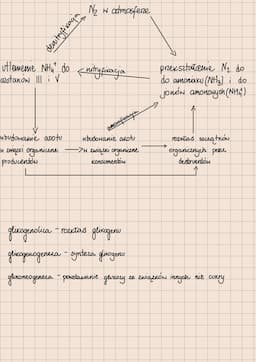 N₂ w atmosferze
denitryfikacja
utlenienie NH₄⁺ do
azotanów III i V
nitryfikacja
przekształcenie N₂ do
do amoniaku (NH₃) i do
jonów amonowych (NH₄⁺)
amonifikacja
wbudowanie azotu
w związki organiczne
producentów
wbudowanie azotu
w związki organiczne
konsumentów
rozkład związków
organicznych przez
destruentów
glikogenoliza - rozkład glikogenu
glikogenogeneza - synteza glikogenu
glukoneogeneza - powstawanie glukozy ze związków innych niż cukry